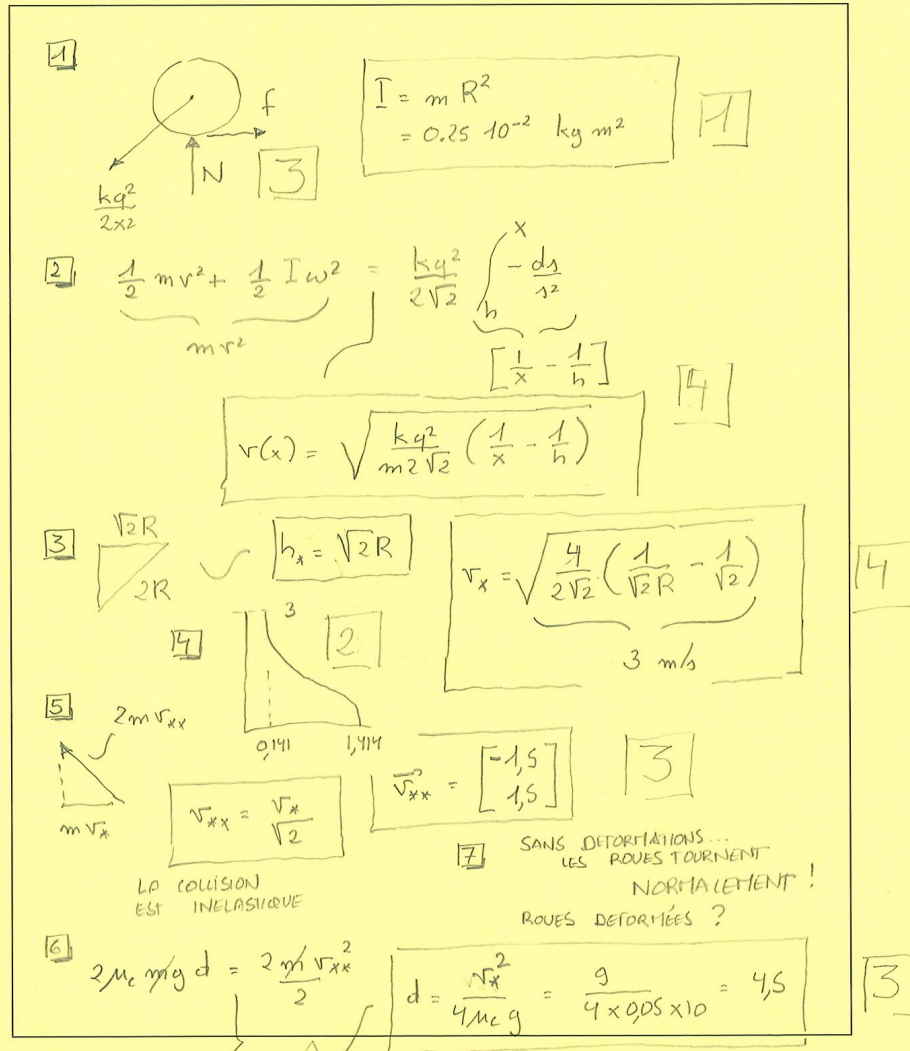 1
f
I = m R²
= 0.25 10⁻² kg m²
1
N
3
kq²
2x²
2
½ mv² + ½ I ω² = kq² / 2√2 ∫ₕˣ - ds/s²
mv²
[1/x - 1/h]
4
v(x) = √( kq² / m2√2 ( 1/x - 1/h ) )
3
√2R
2R
h* = √2R
v* = √( 4 / 2√2 ( 1/√2R - 1/√2 ) )
3 m/s
4
4
3
2
0,141
1,414
5
2mv**
mv*
v** = v* / √2
v⃗** = [ -1,5
1,5 ]
3
LA COLLISION
EST INELASTIQUE
7
SANS DEFORMATIONS...
LES ROUES TOURNENT
NORMALEMENT !
ROUES DEFORMÉES ?
6
2μc mg d = 2m v**² / 2
d = v*² / 4μc g = 9 / 4 × 0,05 × 10 = 4,5
3